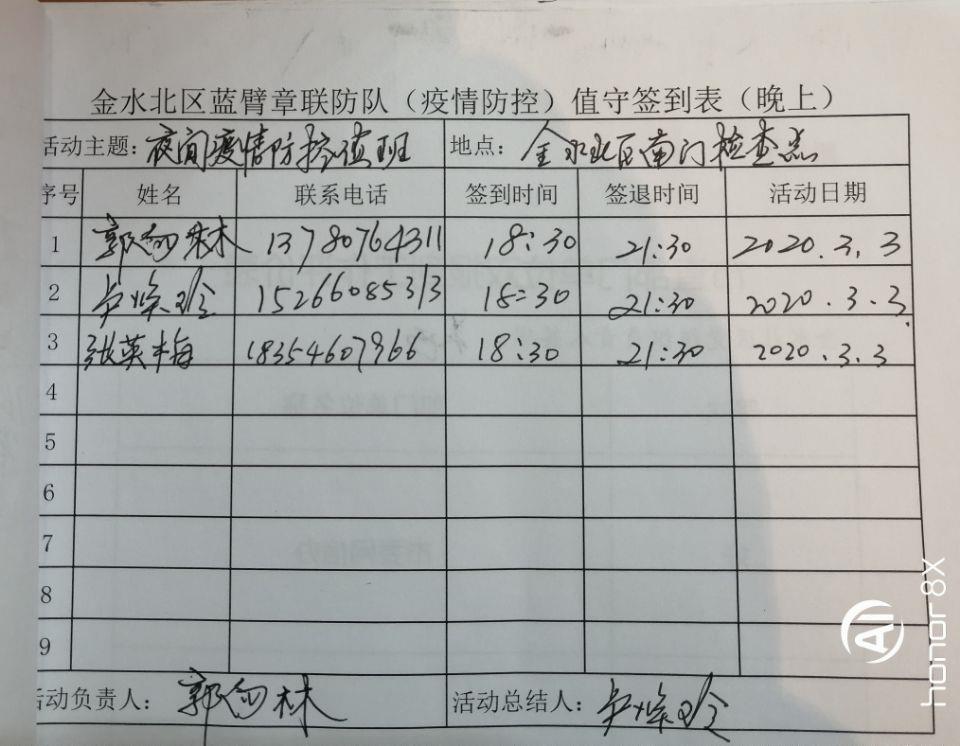 金水北区蓝臂章联防队（疫情防控）值守签到表（晚上）
活动主题：夜间疫情防控值班 地点：金水北区南门检查点
序号 姓名 联系电话 签到时间 签退时间 活动日期
1 郭 林 13780764311 18:30 21:30 2020.3.3
2 15266085313 18:30 21:30 2020.3.3
3 张英梅 18354607966 18:30 21:30 2020.3.3
4
5
6
7
8
9
活动负责人：郭 林 活动总结人：
AI
honor 8X